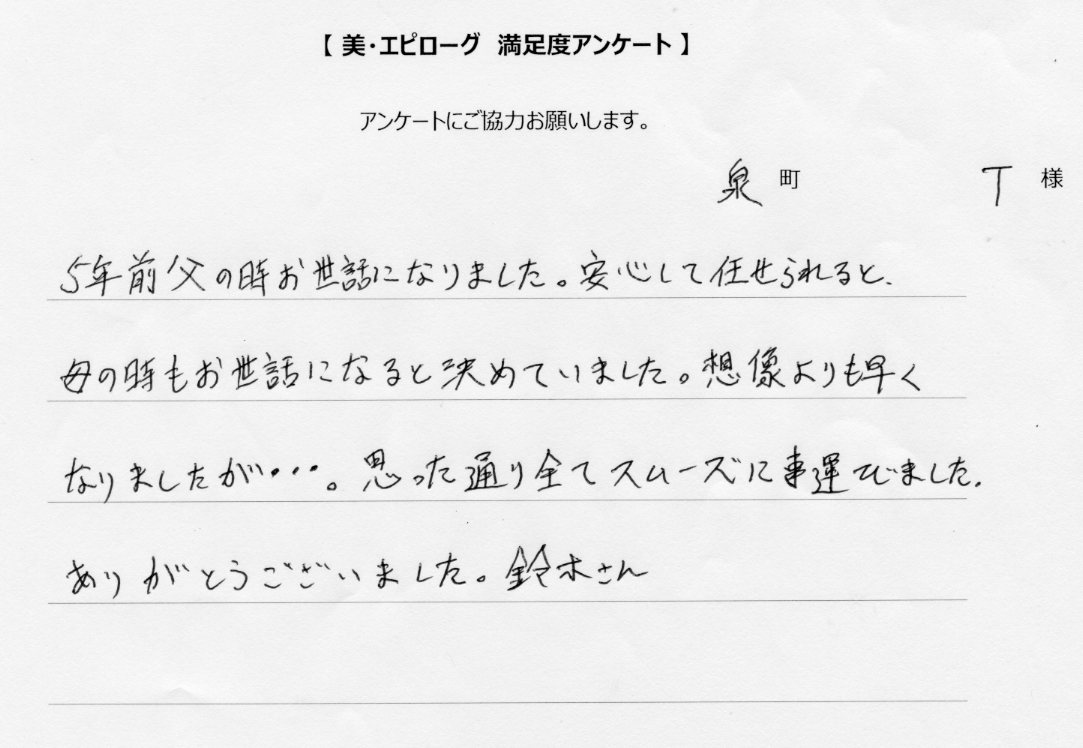 【 美・エピローグ 満足度アンケート 】
アンケートにご協力お願いします。
泉 町 T 様
5年前父の時お世話になりました。安心して任せられると、
母の時もお世話になると決めていました。想像よりも早く
なりましたが・・・。思った通り全てスムーズに事運びました。
ありがとうございました。鈴木さん